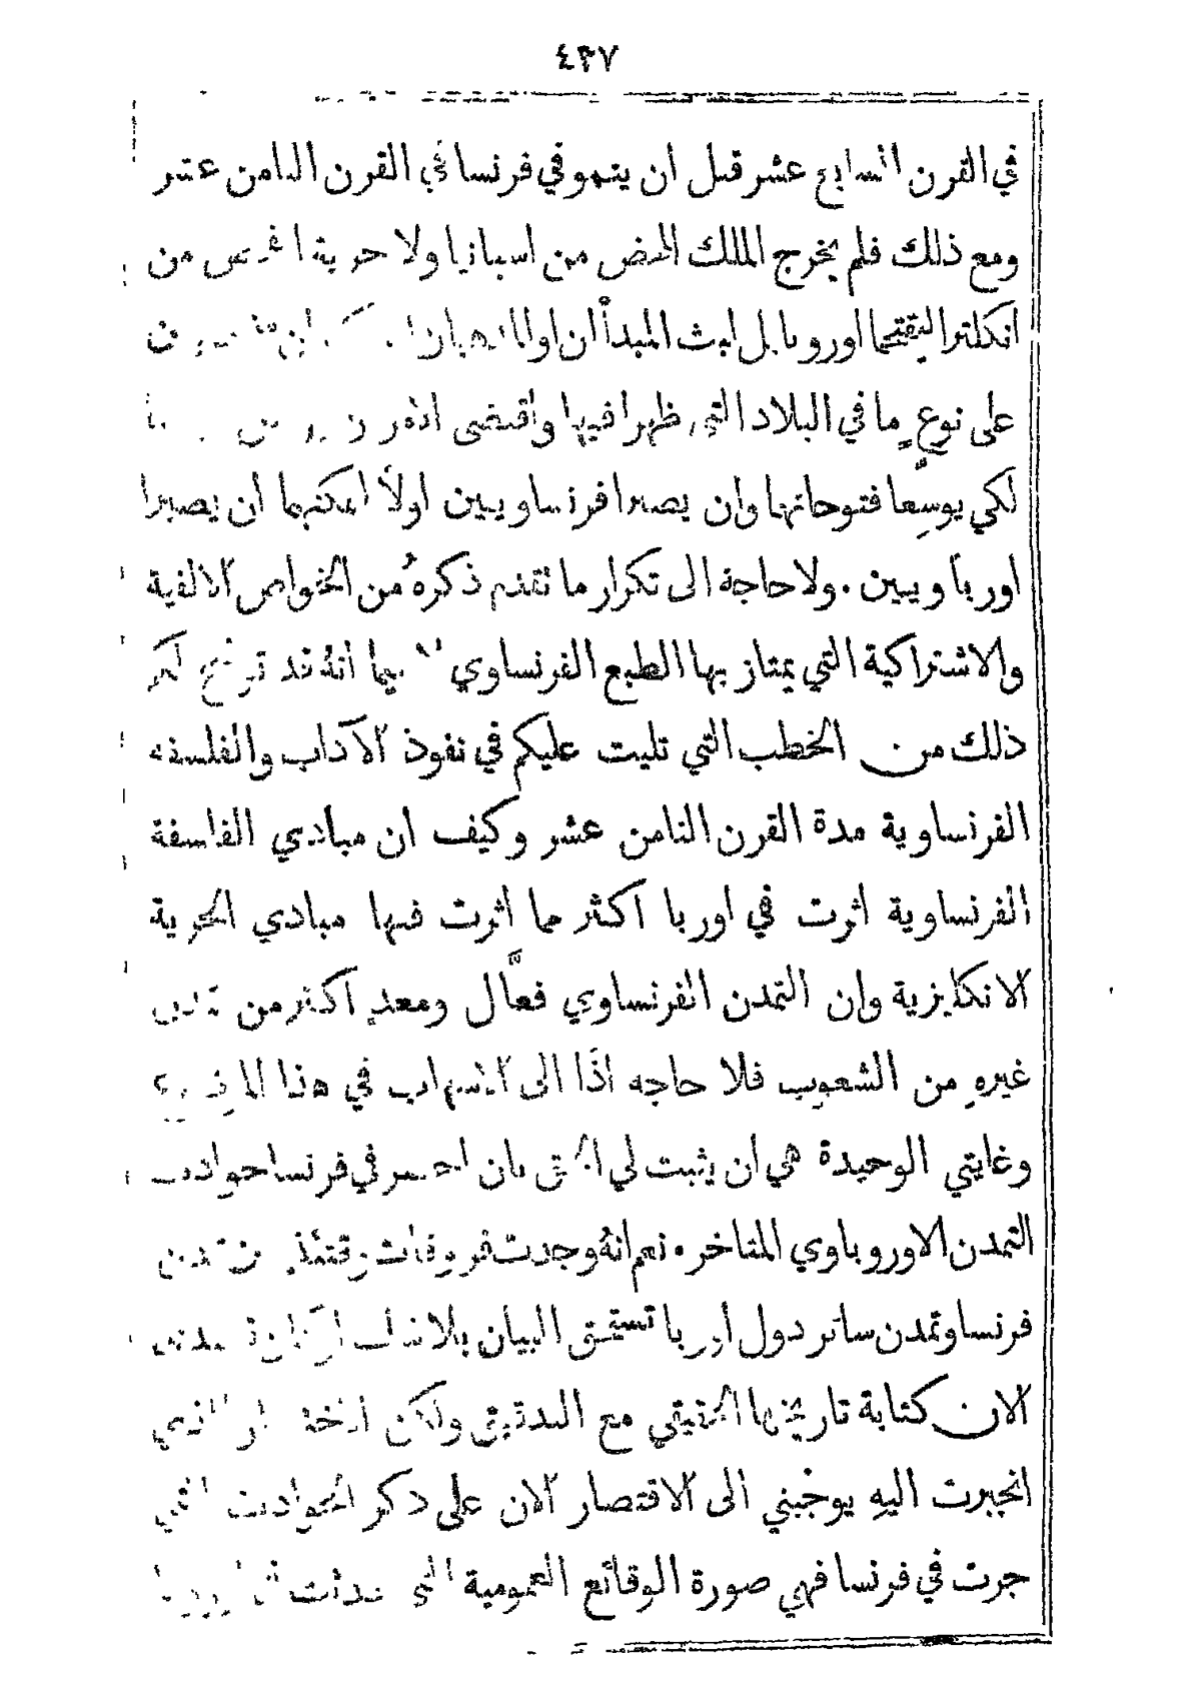 ٤٣٧
في القرن السابع عشر قبل ان ينمو في فرنسا في القرن الثامن عشر
ومع ذلك فلم يخرج الملك المحض من اسبانيا ولا حرية من
انكلترا ليفتتحا اوروبا بل لبث المبدأان
على نوعٍ ما في البلاد التي ظهرا فيها واقتضى
لكي يوسِّعا فتوحاتهما وان يصيرا فرنساويين اولاً امكنهما ان يصيرا
اوروباويين . ولا حاجة الى تكرار ما تقدم ذكرهُ من الخواص الالفية
والاشتراكية التي يمتاز بها الطبع الفرنساوي لا سيما انهُ قد توضح لكم
ذلك من الخطب التي تليت عليكم في نفوذ الآداب والفلسفة
الفرنساوية مدة القرن الثامن عشر وكيف ان مبادي الفلسفة
الفرنساوية اثرت في اوربا اكثر مما اثرت فيها مبادي الحرية
الانكليزية وان التمدن الفرنساوي فعَّال ومعدٍ اكثر من تمدن
غيرهِ من الشعوب فلا حاجه اذًا الى الاسهاب في هذا الموضوع
وغايتي الوحيدة هي ان يثبت لي الحق بان احصر في فرنسا حوادث
التمدن الاوروباوي المتاخر . نعم انهُ وجدت فروقات وقتئذٍ بين تمدن
فرنسا وتمدن سائر دول اوربا تستحق البيان
الان كتابة تاريخها الحقيقي مع التدقيق ولكن الذي
انجبرت اليهِ يوجبني الى الاقتصار الان على ذكر الحوادث التي
جرت في فرنسا فهي صورة الوقائع العمومية التي حدثت